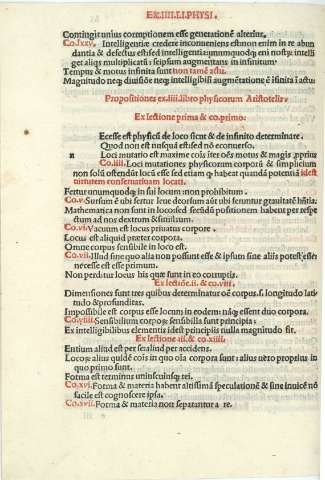 EX.IIII.LI.PHYSI.
Contingit unius corruptionem esse generationẽ alterius.
Co.lxxv. Intelligentiæ credere inconueniens est: non enim in re abun
dantia & defectus est: sed intelligentia: quemadmodum
aliqs multiplicati seipsum augmentans in infinitum
Tempus & motus infinita sunt non tamẽ actu.
Magnitudo neq; diuisiõe neq; intelligibili augmentatione ẽ infinita ĩ actu
Propositiones ex.iiii.libro physicorum Aristotelis
Ex lectione prima & co.primo.
Ecesse est physicũ de loco scire & de infinito determinare.
Quod non est nusquã est: sed nõ econuerso.
n Loci mutatio est maxime cõis iter oẽs motus & magis ꝓprius
Co.iiii. Loci mutationes physicorum corporũ & simplicium
non solũ ostendũt locũ esse sed etiam ꝙ habeat quandã potentiã idest
uirtutem conseruatiuam locati.
Fertur unumquodq; in sui locum non prohibitum.
Co.v. Sursum ẽ ubi fertur leue deorsum aũt ubi feruntur grauitatẽ hñtia.
Mathematica non sunt in loco: sed secũdũ positionem habent per respe
ctum ad nos dextrum & sinistrum.
Co.vi. Vacuum est locus priuatus corpore.
Locus est aliquid præter corpora.
Omne corpus sensibile in loco est.
Co.vii. Illud sine quo alia non possunt esse & ipsum sine aliis potest esse:
necesse est esse primum.
Non perditur locus his quæ sunt in eo corruptis.
Ex lectiõe.ii. & co.viii.
Dimensiones sunt tres quibus determinatur oẽ corpus.s. longitudo lati
tudo & profunditas.
Impossibile est corpus esse locum: in eodem naq; essent duo corpora.
Co.viiii. Sensibilium corporũ sensibilia sunt principia:
Ex intelligibilibus elementis idest principiis nulla magnitudo fit.
Ex lectione .iii. & co.xiiii.
Entium aliud est per se: aliud per accidens.
Locor; alius quidẽ cõis in quo oĩa corpora sunt: alius uero proprius in
quo primo sunt.
Forma est terminus uniuscuiusq; rei.
Co.xvi. Forma & materia habent altissimã speculationẽ & sine inuicẽ nõ
facile est cognoscere ipsa.
Co.xvii. Forma & materia non separantur a re.